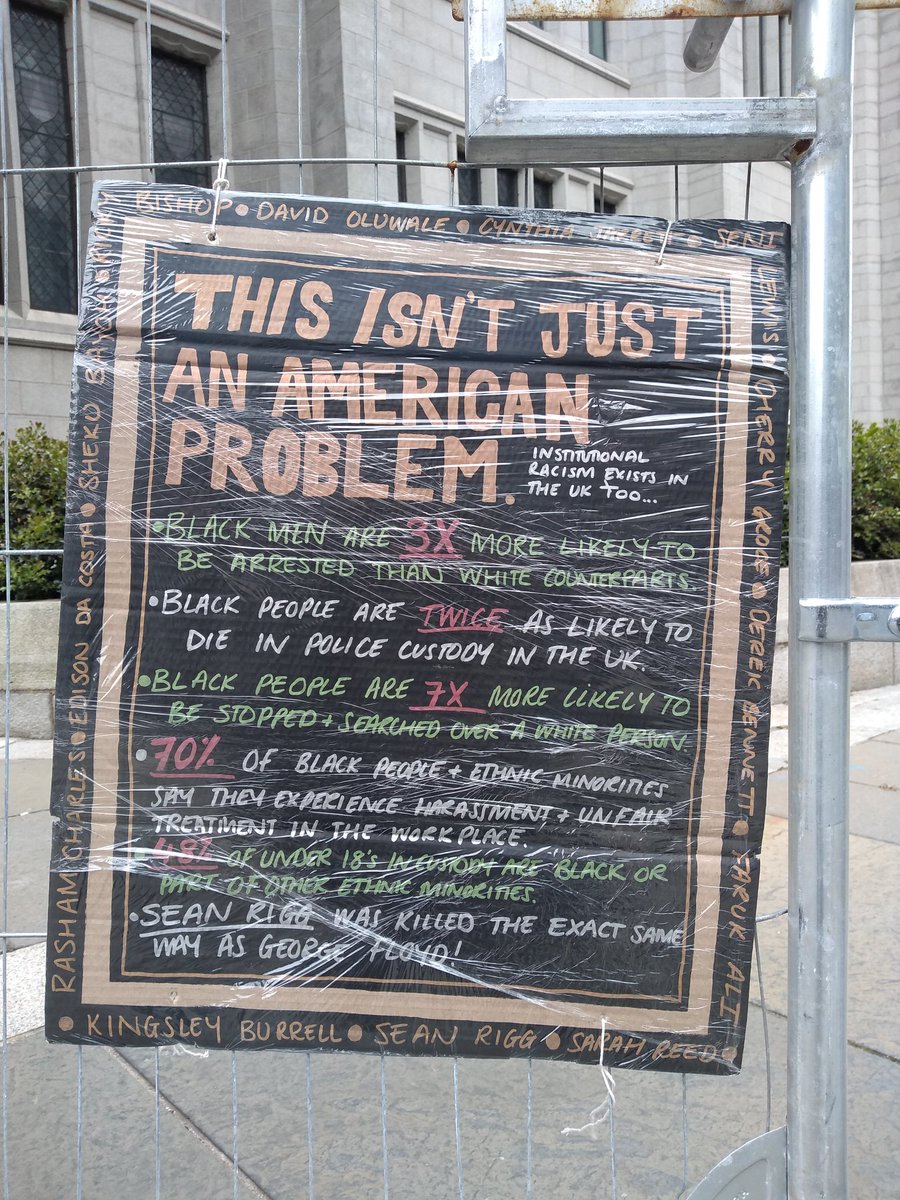 BISHOP • DAVID OLUWALE • CYNTHIA JARRETT • SENI
LEWIS • CHERRY GROCE • DEREK BENNETT • FARUK ALI
THIS ISN'T JUST
AN AMERICAN
PROBLEM.
INSTITUTIONAL
RACISM EXISTS IN
THE UK TOO...
• BLACK MEN ARE 3X MORE LIKELY TO
BE ARRESTED THAN WHITE COUNTERPARTS.
• BLACK PEOPLE ARE TWICE AS LIKELY TO
DIE IN POLICE CUSTODY IN THE UK.
• BLACK PEOPLE ARE 7X MORE LIKELY TO
BE STOPPED + SEARCHED OVER A WHITE PERSON.
• 70% OF BLACK PEOPLE + ETHNIC MINORITIES
SAY THEY EXPERIENCE HARASSMENT + UNFAIR
TREATMENT IN THE WORKPLACE.
• 48% OF UNDER 18'S IN CUSTODY ARE BLACK OR
PART OF OTHER ETHNIC MINORITIES.
• SEAN RIGG WAS KILLED THE EXACT SAME
WAY AS GEORGE FLOYD!
• KINGSLEY BURRELL • SEAN RIGG • SARAH REED •
RASHAM CHARLES • EDISON DA COSTA • SHEKU BAYOH